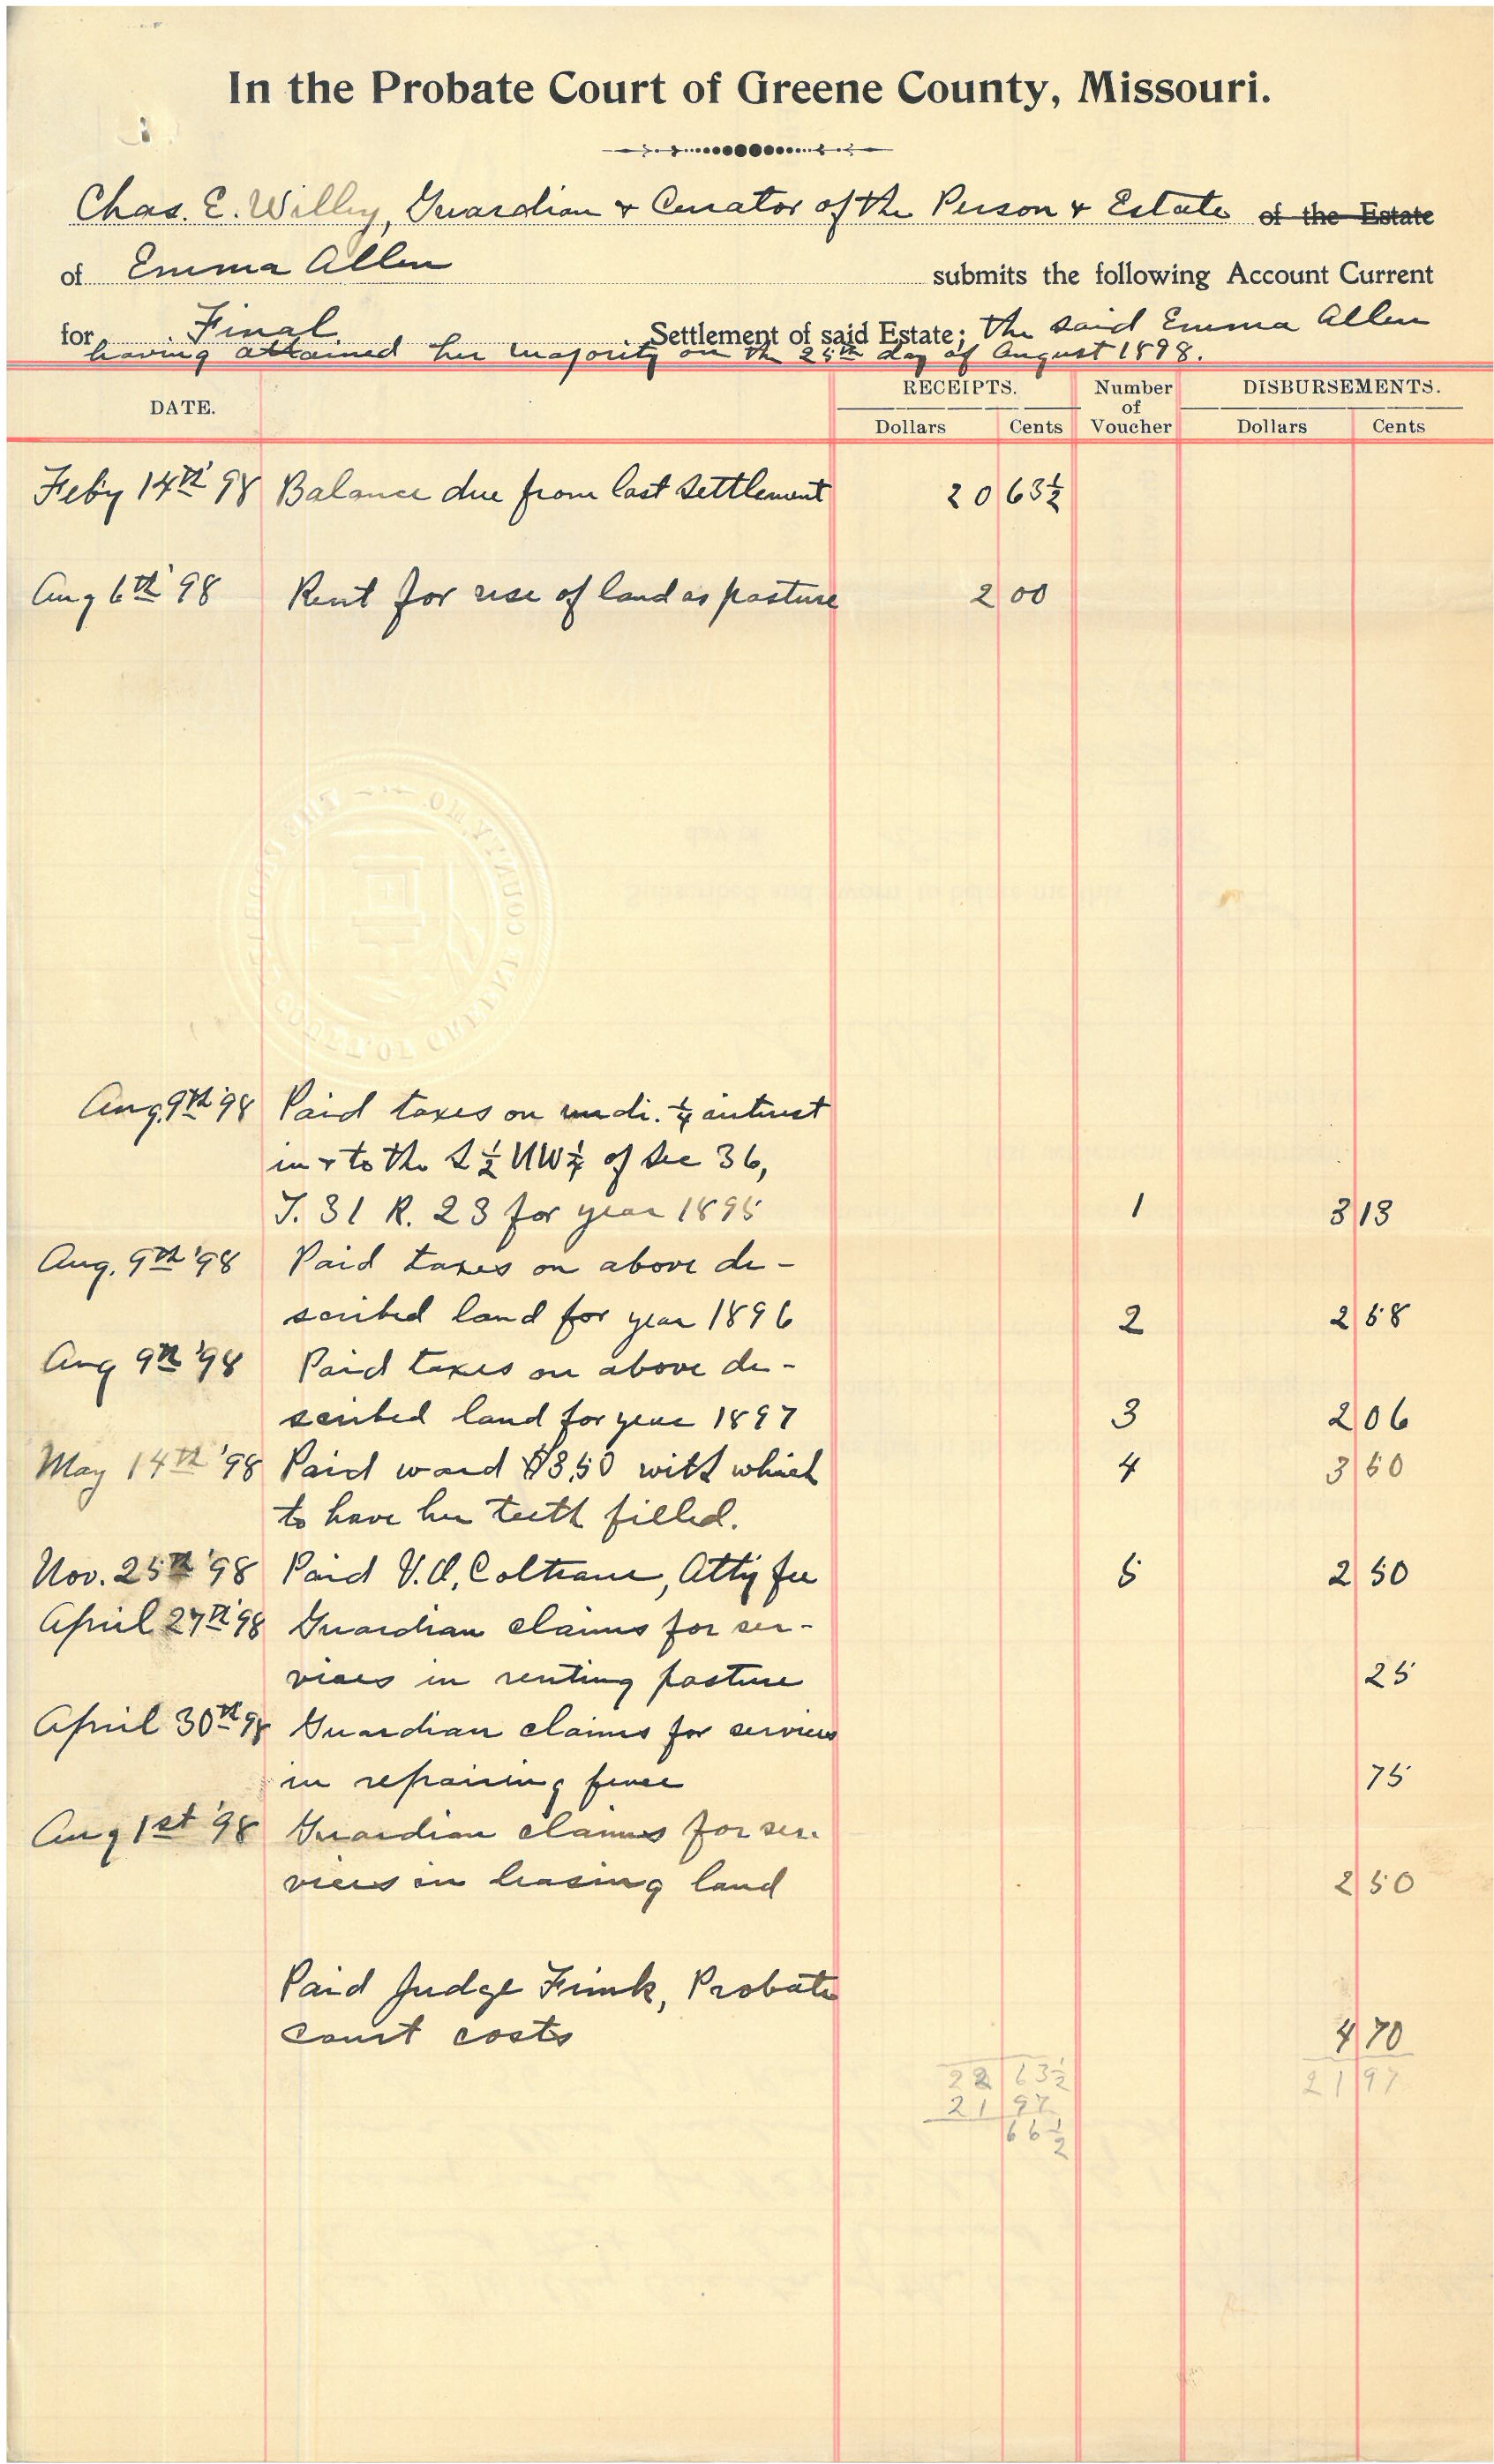 In the Probate Court of Greene County, Missouri.
Chas. E. Willey, Guardian & Curator of the Person & Estate of the Estate
of Emma Allen submits the following Account Current
for Final Settlement of said Estate; the said Emma Allen
having attained her majority on the 25th day of August 1898.
DATE. RECEIPTS. Number of Voucher DISBURSEMENTS.
Dollars Cents Dollars Cents
Feb'y 14th '98 Balance due from last settlement 20 63½
Aug 6th '98 Rent for use of land as pasture 2 00
Aug. 9th '98 Paid taxes on undi. ¼ interest
in & to the S ½ NW ¼ of Sec 36,
T. 31 R. 23 for year 1895 1 3 13
Aug. 9th '98 Paid taxes on above de-
scribed land for year 1896 2 2 58
Aug 9th '98 Paid taxes on above de-
scribed land for year 1897 3 2 06
May 14th '98 Paid ward $3.50 with which 4 3 50
to have her teeth filled.
Nov. 25th '98 Paid V. O. Coltrane, Att'y fee 5 2 50
April 27th '98 Guardian claims for ser-
vices in renting pasture 25
April 30th '98 Guardian claims for services
in repairing fence 75
Aug 1st '98 Guardian claims for ser-
vices in leasing land 2 50
Paid Judge Fink, Probate
court costs 4 70
22 63½ 21 97
21 97
66½